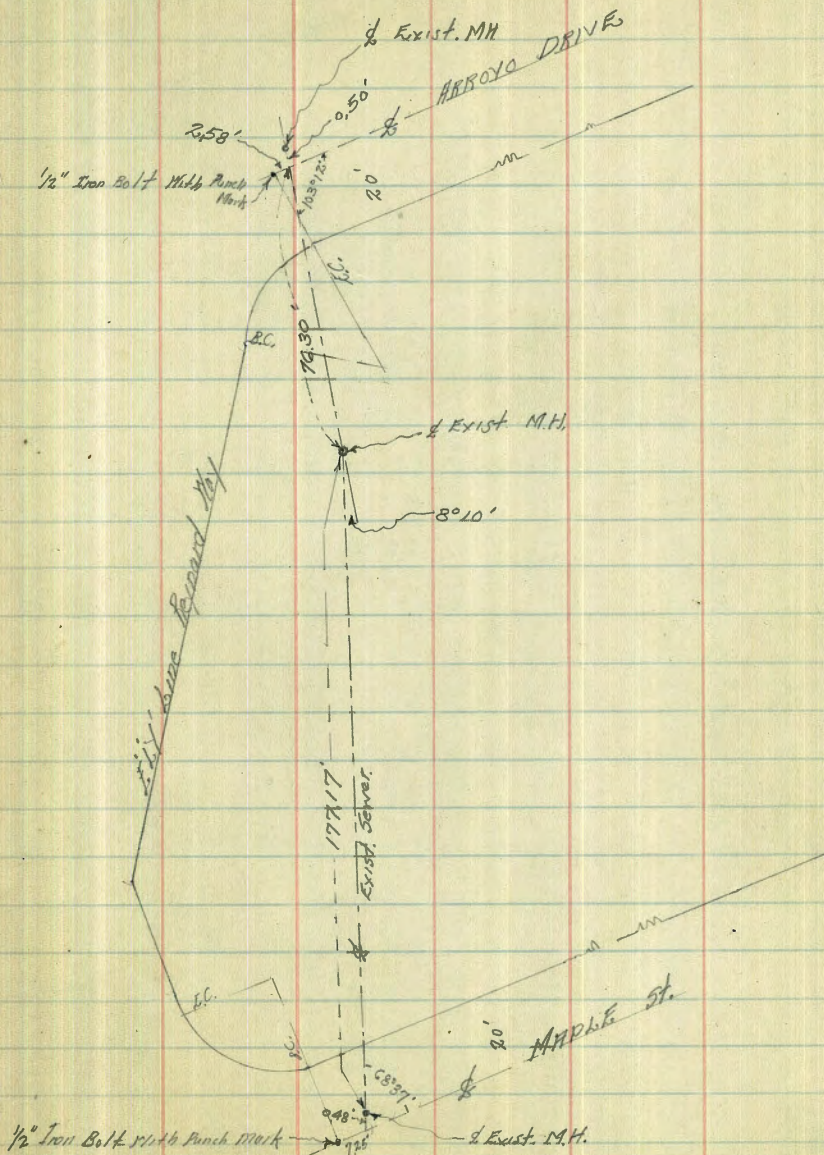 ℄ Exist. MH
ARROYO DRIVE
0.50'
℄
2.58'
1/2" Iron Bolt With Punch
Mark
103°12'
20'
E.C.
B.C.
76.30'
℄ Exist. M.H.
8°10'
Line Reynard Way
177.17'
Exist. Sewer
℄
E.C.
B.C.
20'
MAPLE St.
68°37'
℄
0.48'
1/2" Iron Bolt With Punch Mark
7.25'
℄ Exist. M.H.